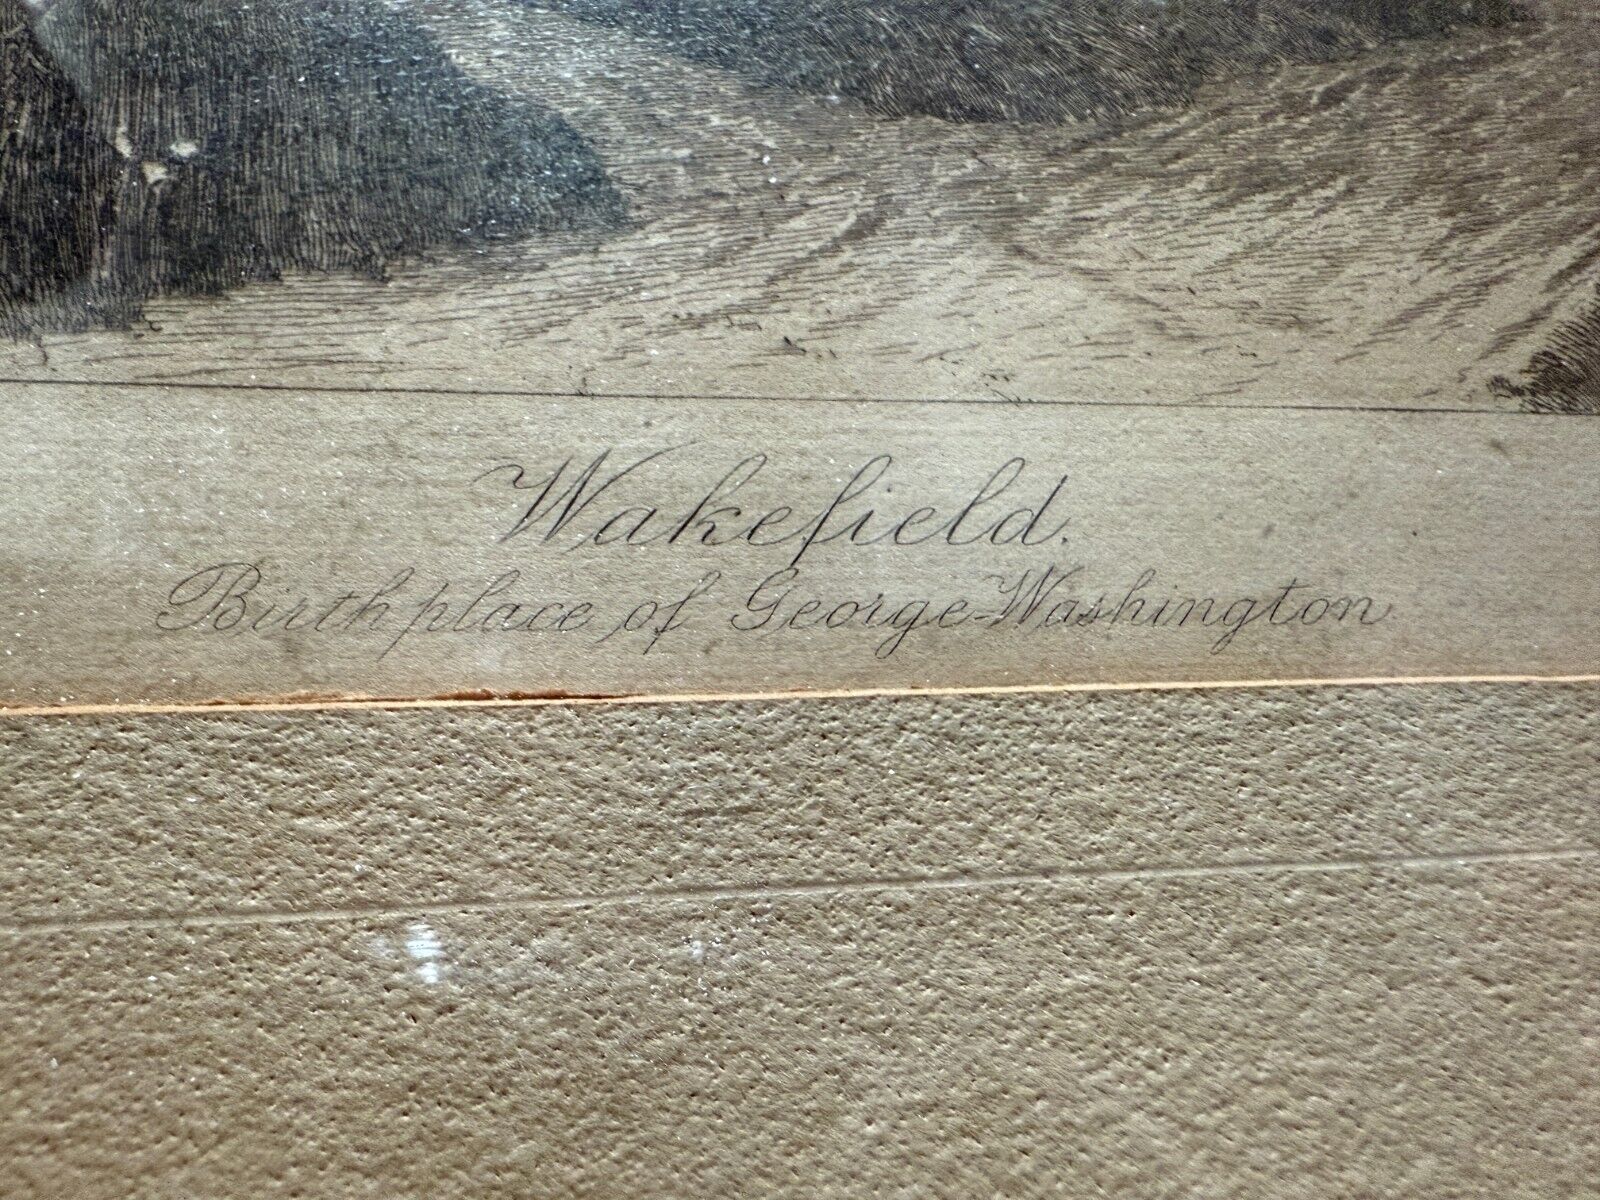 Wakefield.
Birthplace of George Washington